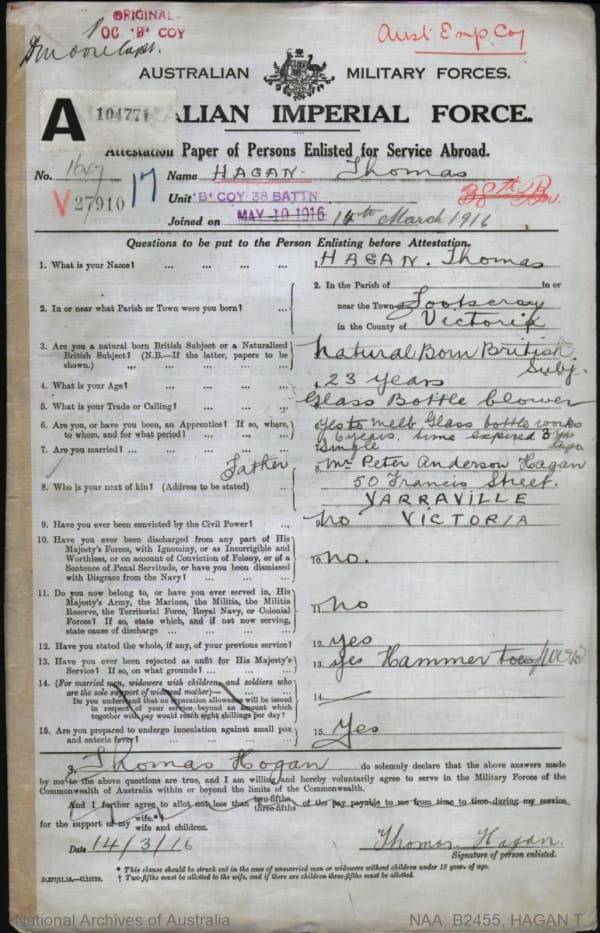 ORIGINAL
OC 'B' COY
Aust Emp. Coy
AUSTRALIAN MILITARY FORCES.
A 104771
ALIAN IMPERIAL FORCE.
Attestation Paper of Persons Enlisted for Service Abroad.
No. 1647 Name HAGAN Thomas
V27910 17 Unit 'B' COY 38 BATTN 38th Bn.
Joined on MAY 10 1916 14th March 1916
Questions to be put to the Person Enlisting before Attestation.
1. What is your Name? ... ... ... ... 1. HAGAN. Thomas
2. In or near what Parish or Town were you born? ... 2. In the Parish of in or
near the Town of Footscray
in the County of Victoria
3. Are you a natural born British Subject or a Naturalized
British Subject? (N.B.—If the latter, papers to be
shown.) Natural Born British
Subj.
4. What is your Age? ... ... ... ... 4. 23 years
5. What is your Trade or Calling? ... ... ... Glass Bottle blower
6. Are you, or have you been, an Apprentice? If so, where,
to whom, and for what period? ... ... yes to Melb Glass bottle works
6 years. time expired 3 yrs
ago
7. Are you married? ... ... ... ... Single
8. Who is your next of kin? (Address to be stated) ... Father
8. Mr Peter Anderson Hagan
50 Francis Street.
YARRAVILLE
VICTORIA
9. Have you ever been convicted by the Civil Power? ... 9. no
10. Have you ever been discharged from any part of His
Majesty's Forces, with Ignominy, or as Incorrigible and
Worthless, or on account of Conviction of Felony, or of a
Sentence of Penal Servitude, or have you been dismissed
with Disgrace from the Navy? ... ... ... 10. no.
11. Do you now belong to, or have you ever served in, His
Majesty's Army, the Marines, the Militia, the Militia
Reserve, the Territorial Force, Royal Navy, or Colonial
Forces? If so, state which, and if not now serving,
state cause of discharge ... ... ... ... 11. no
12. Have you stated the whole, if any, of your previous service? 12. yes
13. Have you ever been rejected as unfit for His Majesty's
Service? If so, on what grounds? ... ... 13. yes Hammer toes
14. (For married men, widowers with children, and soldiers who
are the sole support of widowed mother)—
Do you understand that no separation allowance will be issued
in respect of your service beyond an amount which
together with pay would reach eight shillings per day? 14. —
15. Are you prepared to undergo inoculation against small pox
and enteric fever? ... ... ... ... 15. Yes
I, Thomas Hogan do solemnly declare that the above answers made
by me to the above questions are true, and I am willing and hereby voluntarily agree to serve in the Military Forces of the
Commonwealth of Australia within or beyond the limits of the Commonwealth.
And I further agree to allot not less than two-fifths three-fifths of the pay payable to me from time to time during my service
for the support of my wife.*
wife and children.
Date 14/3/16 Thomas Hagan.
Signature of person enlisted.
* This clause should be struck out in the case of unmarried men or widowers without children under 18 years of age.
† Two-fifths must be allotted to the wife, and if there are children three-fifths must be allotted.
National Archives of Australia NAA: B2455, HAGAN T